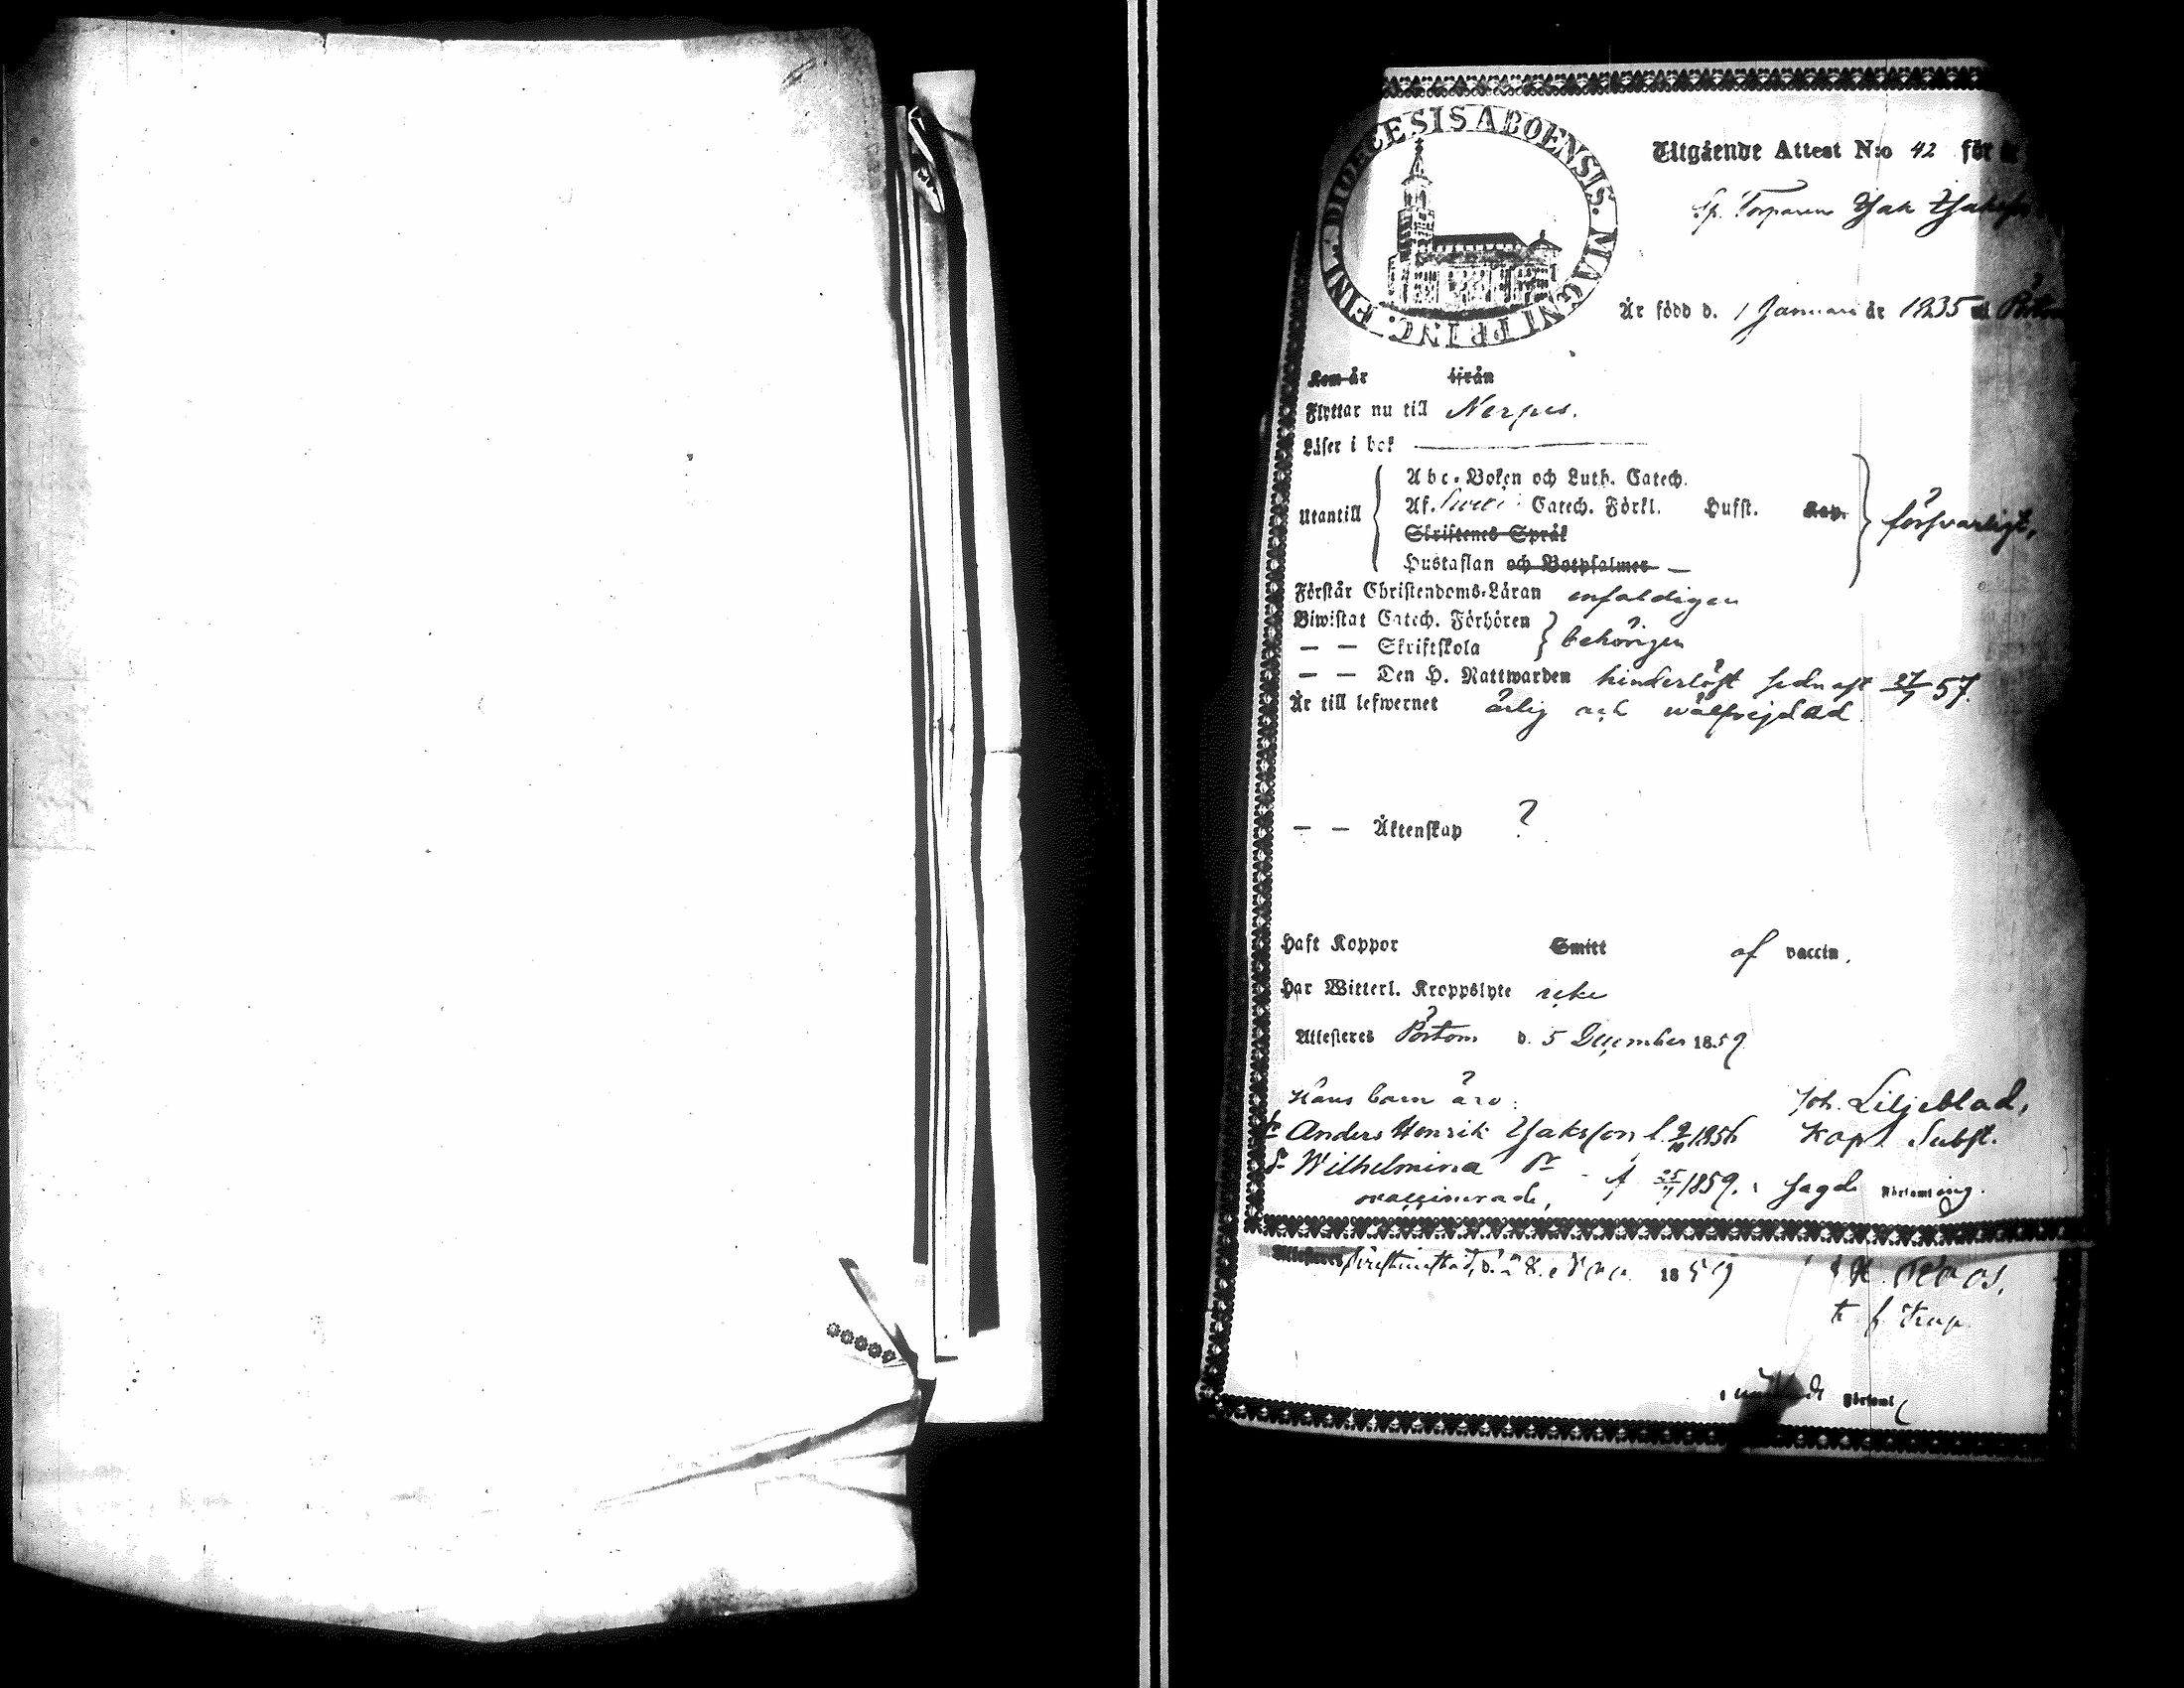 FINL. DIOECESIS ABOENSIS. MAGNI PRINC.
Utgående Attest N:o 42 för
Torparen Isak Isaksson
Är född d. 1 Januari år 1835 i
Kom år ifrån
Flyttar nu till Nerpes.
Läser i bok
Abc-Boken och Luth. Catech.
Utantill Af. Catech. Förkl. Hufst. Kap. försvarligt,
Skriftenes Språk
Hustaflan och Botpsalmer
Förstår Christendoms-Läran enfaldigen
Biwistat Catech. Förhören
— — Skriftskola behörigen
— — Den H. Nattwarden hinderlöst sednast 57.
Är till lefwernet ärlig och wälfrejdad.
— — Äktenskap ?
Haft Koppor Smitt af vaccin.
Har Witterl. Kroppslyte icke
Attesteres Pörtom d. 5 December 1859
Hans barn äro: Joh. Liljeblad,
Anders Henrik Isaksson f. 1856 Kapl. Subst.
Wilhelmina f. 25 1859. i sagde Församling.
ovaccinerade,
Attesteres d. 28 1859
t. f. Kap.
i Förfaml